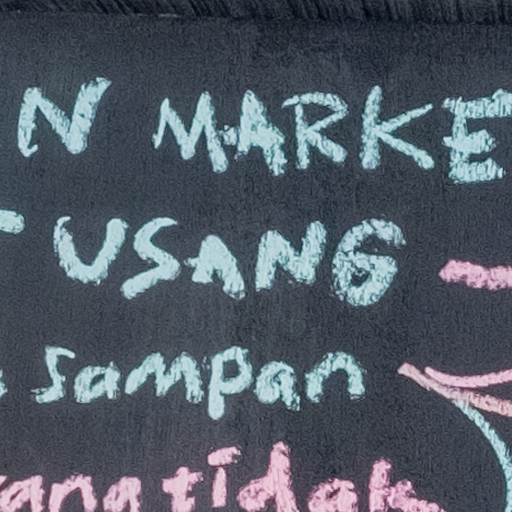 N MARKE
USANG
sampan
ang tidak